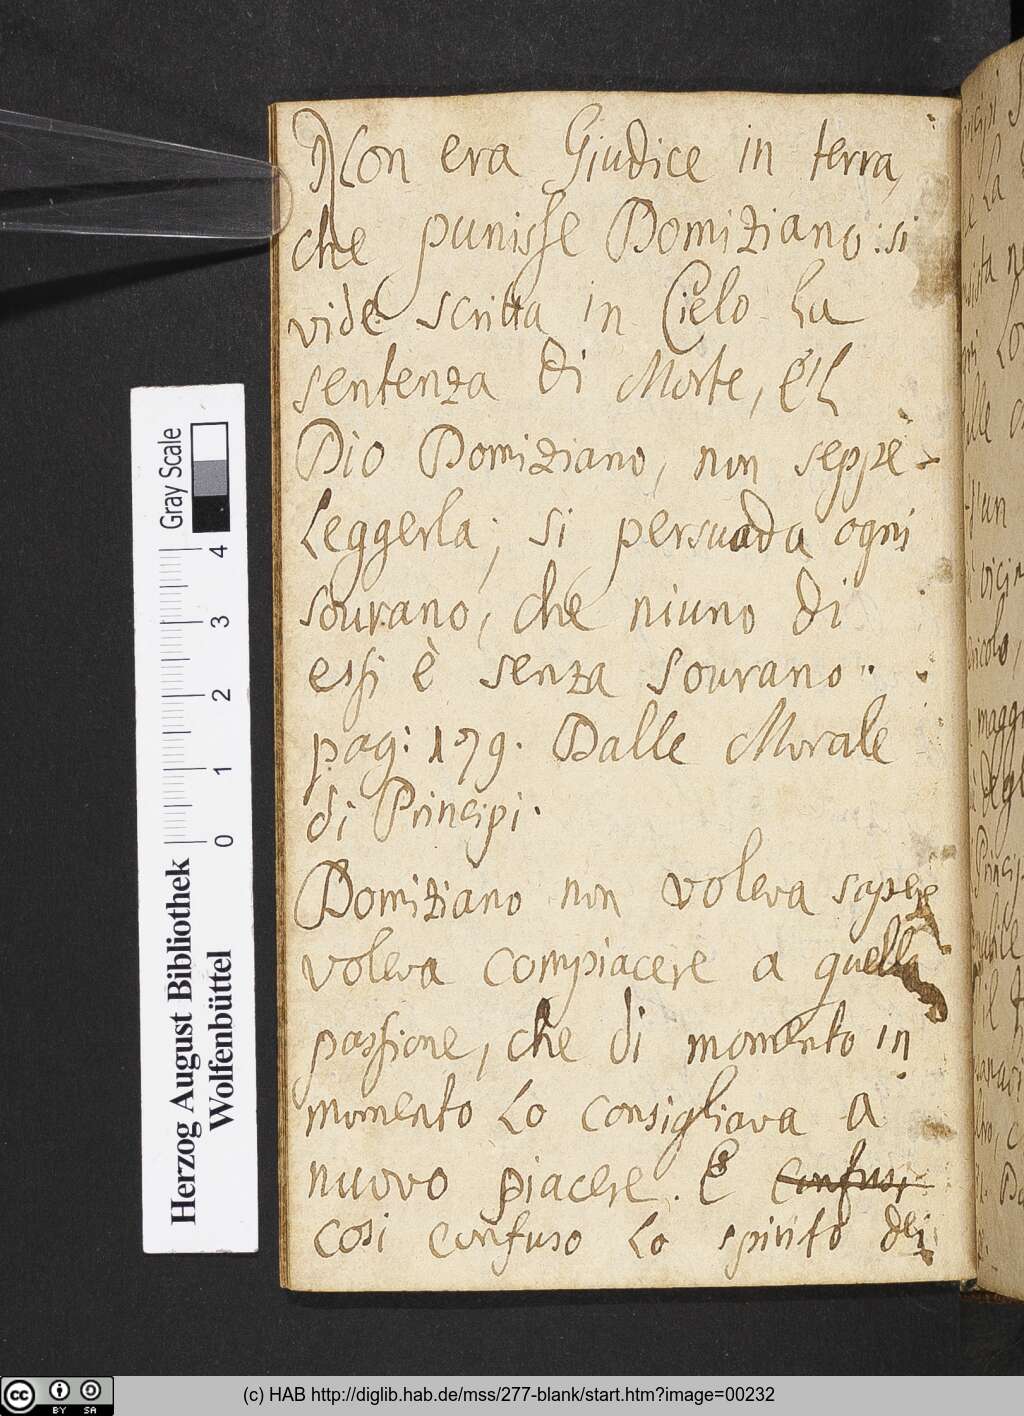 Non era Giudice in terra,
che punisse Domiziano: si
vide scritta in Cielo la
sentenza di Morte, e'l
Dio Domiziano, non seppe
Leggerla; si persuada ogni
sourano, che niuno di
essi è senza sourano..
pag: 179. Dalle Morale
di Principi.
Domiziano non voleva sapere
voleva compiacere a quella
passione, che di momento in
momento lo consigliava a
nuovo piacere. È confusi
cosi confuso lo spirito dei
Gray Scale
4
3
2
1
0
Herzog August Bibliothek
Wolfenbüttel
cc BY SA
(c) HAB http://diglib.hab.de/mss/277-blank/start.htm?image=00232